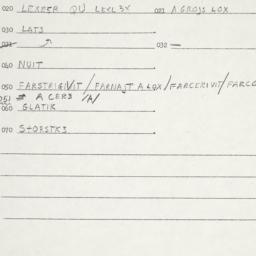 020 LEKPER QU LEVL 3X 021 A GROSS LOX
030 LATS
031 032 —
040 NUIT
050 FARSTRIGNIT / FARNAJT A LOX / FARCERIVIT / FARCO
051 # A CERS /A/
060 GLATIK
070 STORSTKS